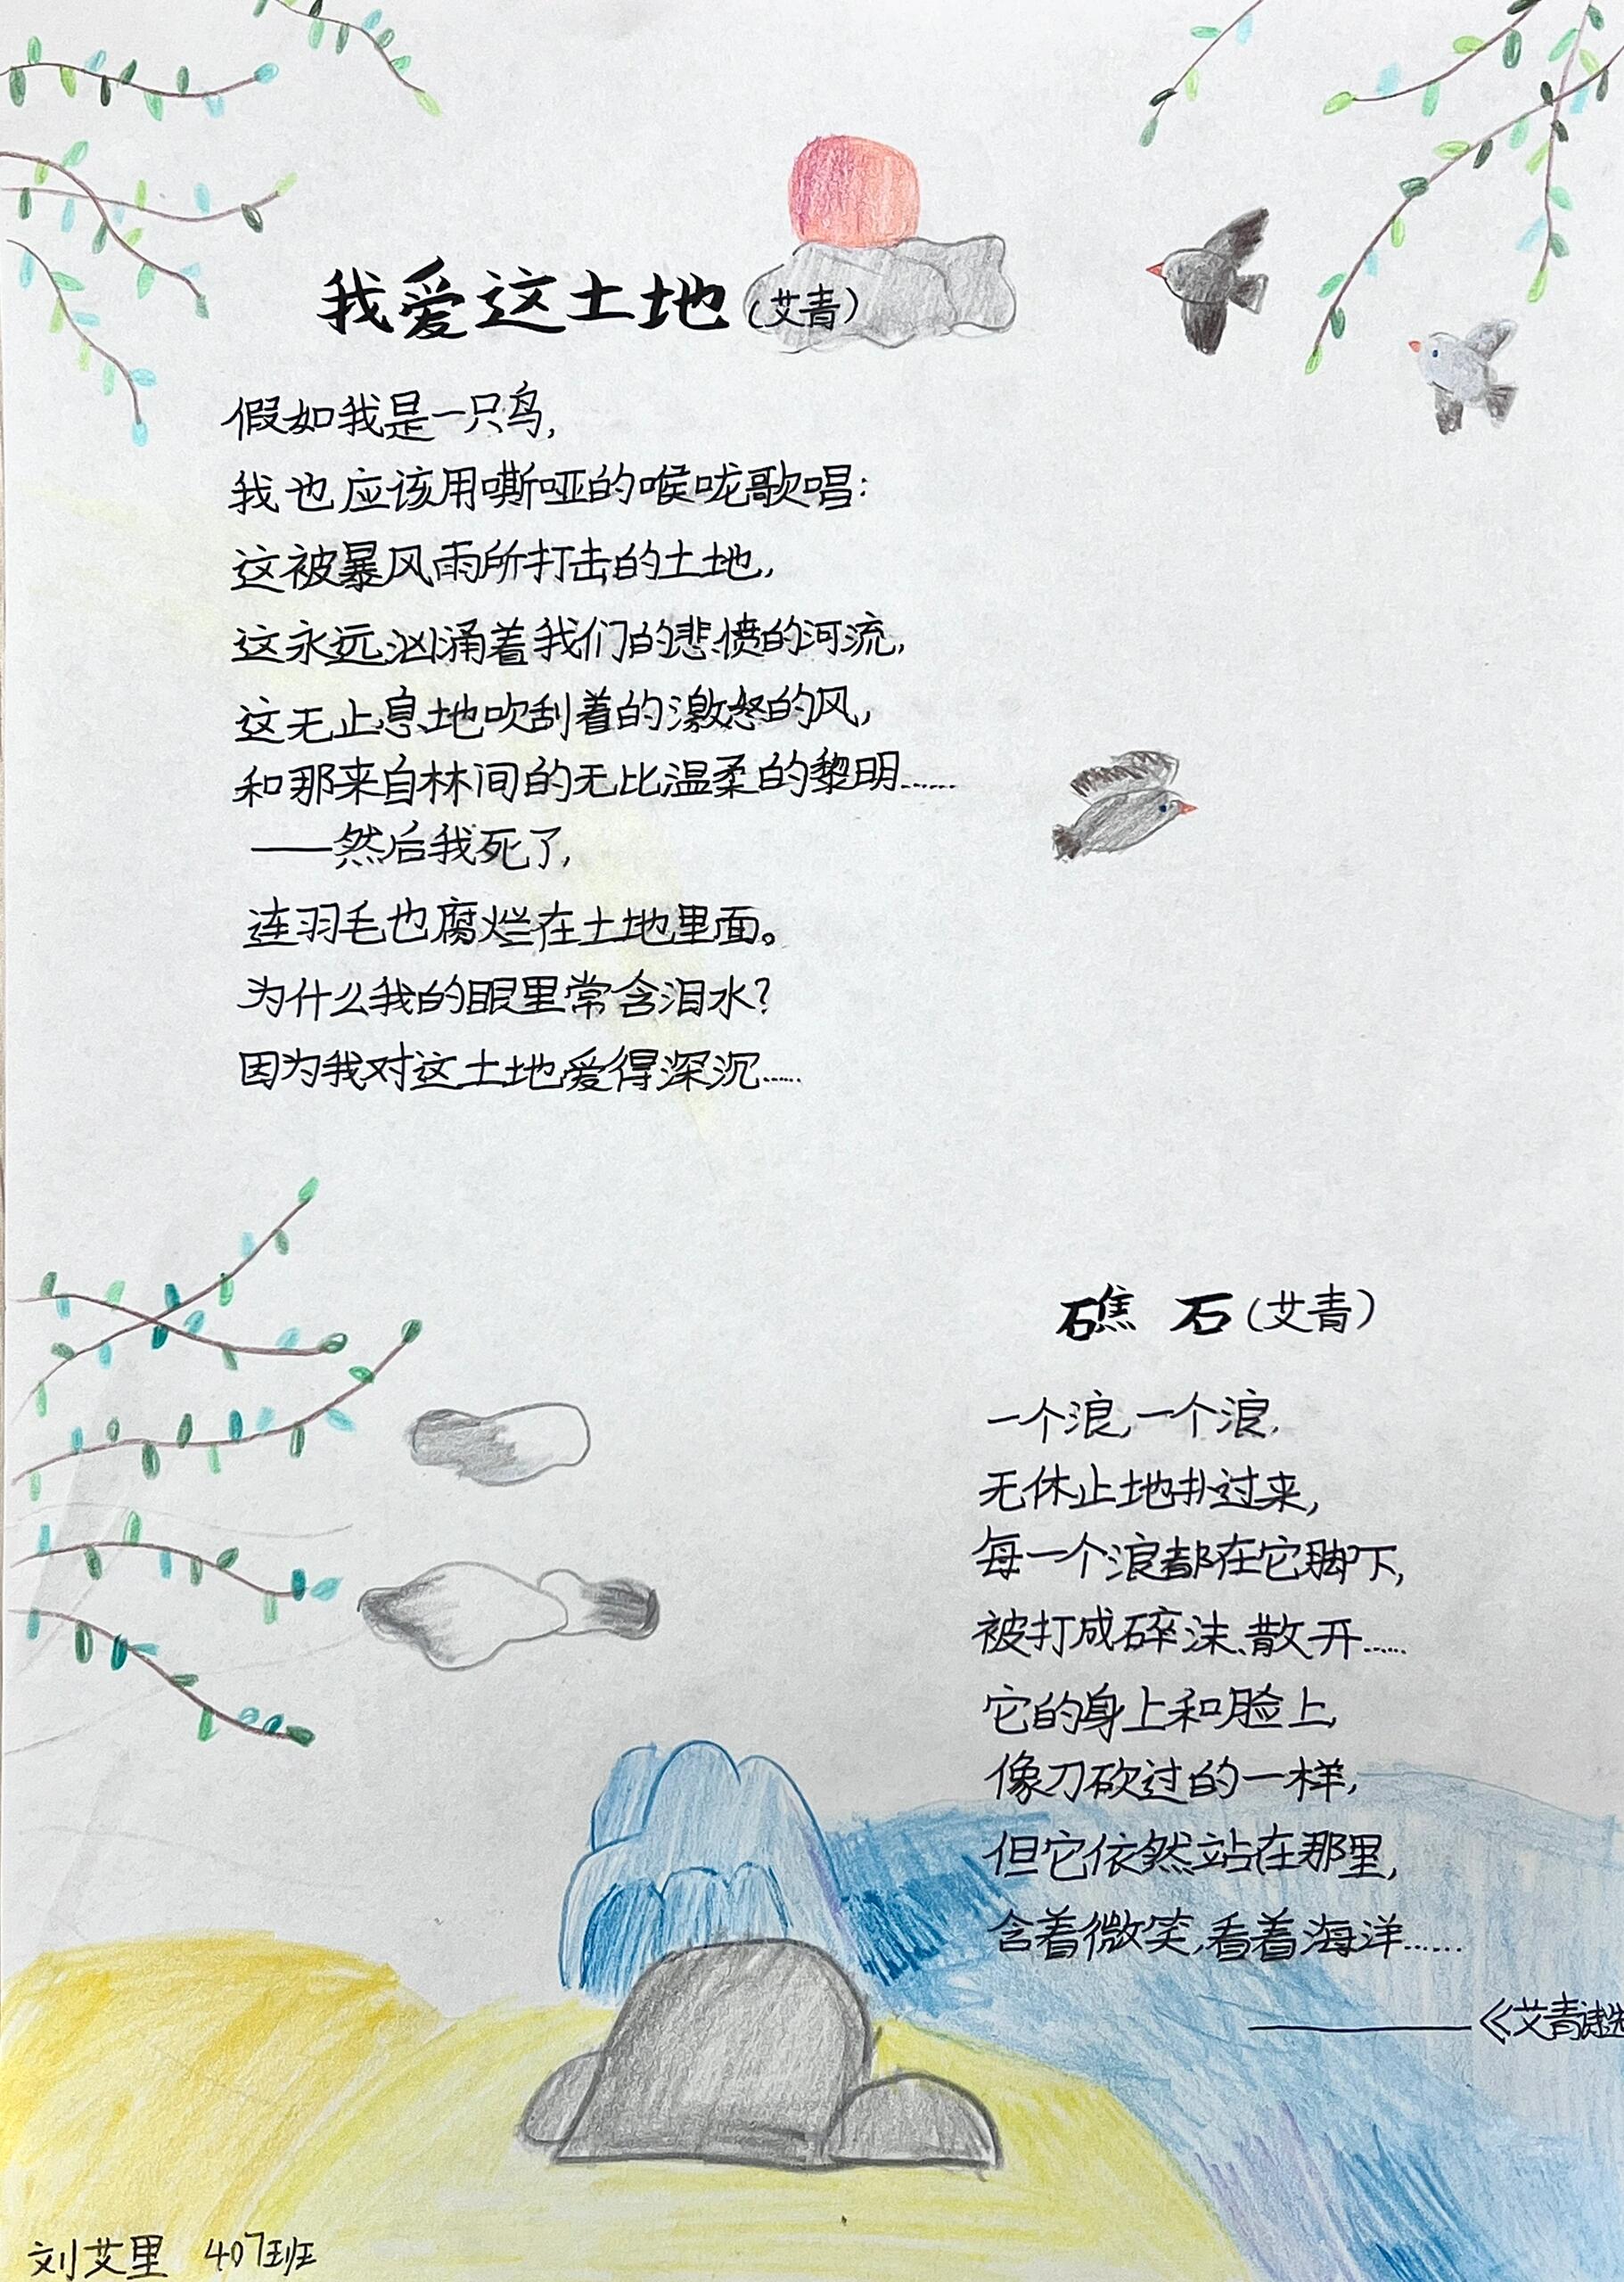 我爱这土地(艾青)
假如我是一只鸟,
我也应该用嘶哑的喉咙歌唱:
这被暴风雨所打击的土地,
这永远汹涌着我们的悲愤的河流,
这无止息地吹刮着的激怒的风,
和那来自林间的无比温柔的黎明……
——然后我死了,
连羽毛也腐烂在土地里面。
为什么我的眼里常含泪水?
因为我对这土地爱得深沉……
礁 石(艾青)
一个浪,一个浪,
无休止地扑过来,
每一个浪都在它脚下,
被打成碎沫、散开……
它的身上和脸上,
像刀砍过的一样,
但它依然站在那里,
含着微笑,看着海洋……
——《艾青诗选
刘艾里 407班